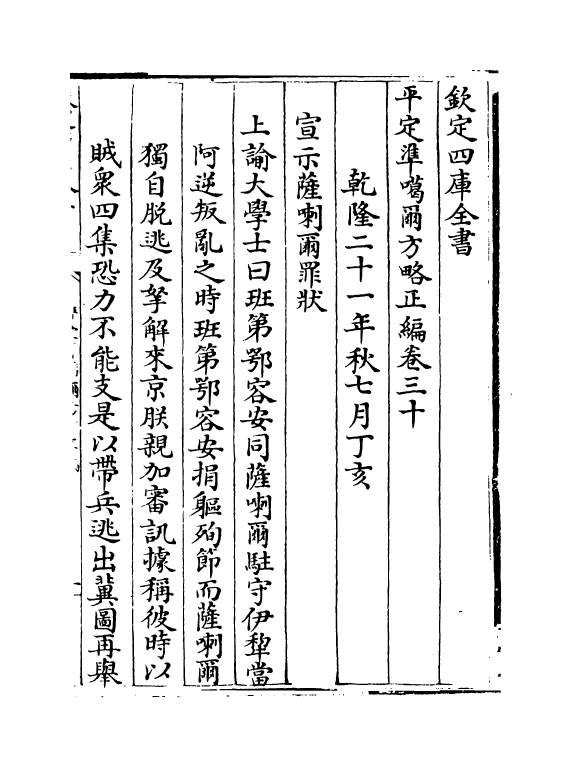 欽定四庫全書
平定準噶爾方略正編卷三十
乾隆二十一年秋七月丁亥
宣示薩喇爾罪狀
上諭大學士曰班第鄂容安同薩喇爾駐守伊犂當
阿逆叛亂之時班第鄂容安捐軀殉節而薩喇爾
獨自脱逃及拏解來京朕親加審訊據稱彼時以
賊衆四集恐力不能支是以帶兵逃出冀圖再舉